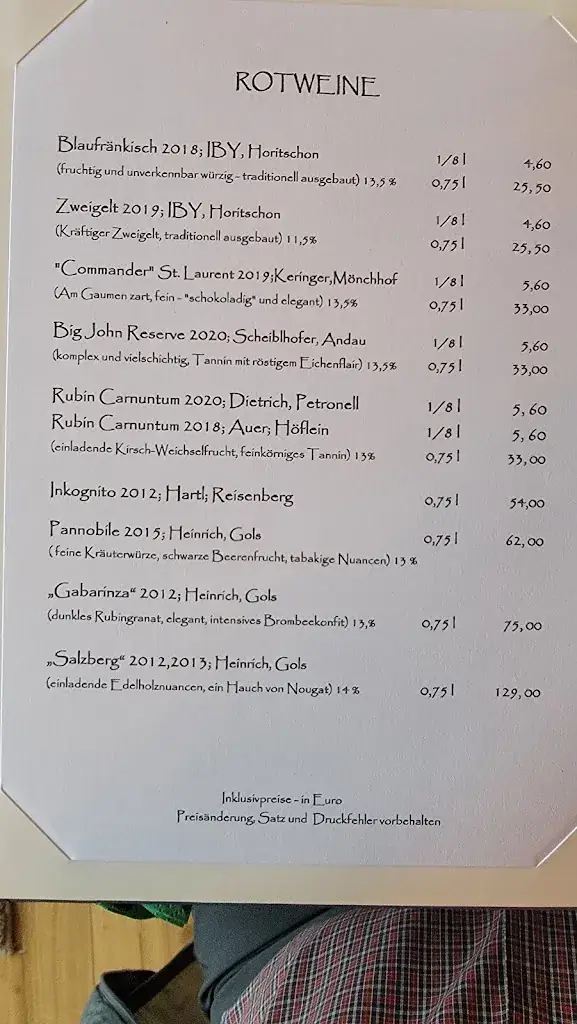 ROTWEINE
Blaufränkisch 2018; IBY, Horitschon 1/8 l 4,60
(fruchtig und unverkennbar würzig - traditionell ausgebaut) 13,5 % 0,75 l 25,50
Zweigelt 2019; IBY, Horitschon 1/8 l 4,60
(Kräftiger Zweigelt, traditionell ausgebaut) 11,5% 0,75 l 25,50
"Commander" St. Laurent 2019;Keringer,Mönchhof 1/8 l 5,60
(Am Gaumen zart, fein - "schokoladig" und elegant) 13,5% 0,75 l 33,00
Big John Reserve 2020; Scheiblhofer, Andau 1/8 l 5,60
(komplex und vielschichtig, Tannin mit röstigem Eichenflair) 13,5% 0,75 l 33,00
Rubin Carnuntum 2020; Dietrich, Petronell 1/8 l 5,60
Rubin Carnuntum 2018; Auer; Höflein 1/8 l 5,60
(einladende Kirsch-Weichselfrucht, feinkörniges Tannin) 13% 0,75 l 33,00
Inkognito 2012; Hartl; Reisenberg 0,75 l 54,00
Pannobile 2015; Heinrich, Gols 0,75 l 62,00
( feine Kräuterwürze, schwarze Beerenfrucht, tabakige Nuancen) 13 %
„Gabarinza“ 2012; Heinrich, Gols
(dunkles Rubingranat, elegant, intensives Brombeekonfit) 13,% 0,75 l 75,00
„Salzberg“ 2012,2013; Heinrich, Gols
(einladende Edelholznuancen, ein Hauch von Nougat) 14 % 0,75 l 129,00
Inklusivpreise - in Euro
Preisänderung, Satz und Druckfehler vorbehalten